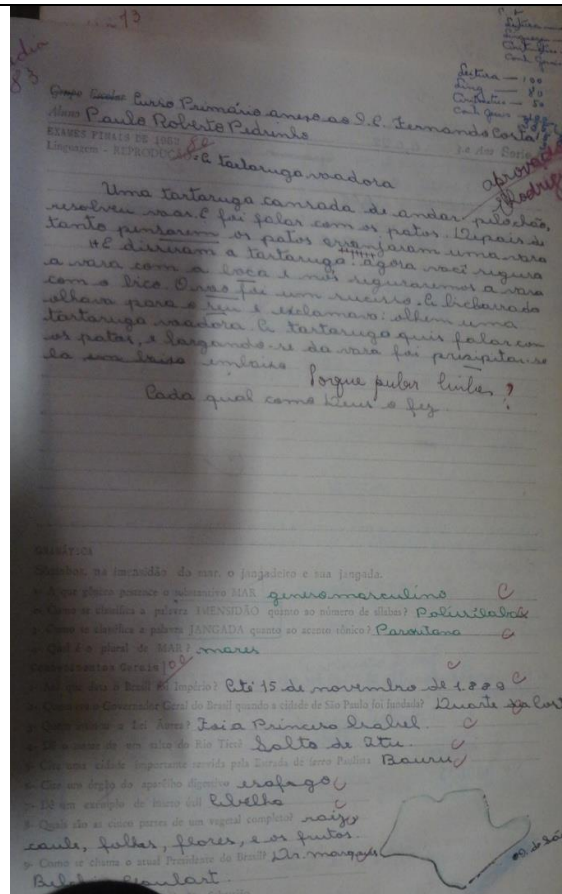 13
Leitura — 100
Ling — 80
Grupo Escolar Curso Primário anexo ao I.E. Fernando Costa
Aluno Paulo Roberto Pedrinho
EXAMES FINAIS DE 1962
80
Linguagem - REPRODUÇÃO
aprovado
A tartaruga voadora
Uma tartaruga cansada de andar pelo chão,
resolveu voar. E foi falar com os patos. Depois de
tanto pensarem os patos arranjaram uma vara
E disseram a tartaruga: agora você segura
a vara com a boca e nós seguraremos a vara
com o bico. O voo foi um sucesso. A bicharada
olhava para o seu e exclamava: olhem uma
tartaruga voadora A tartaruga quis falar com
os patos, e largando-se da vara foi precipitar-se
la em baixo
Porque pular linhas?
Cada qual como Deus o fez.
GRAMÁTICA
na imensidão do mar, o jangadeiro e sua jangada.
A que gênero pertence o substantivo MAR genero masculino C
Como se classifica a palavra IMENSIDÃO quanto ao número de sílabas? Polissílaba
Como se classifica a palavra JANGADA quanto ao acento tônico? Paroxitona C
Qual é o plural de MAR? mares
Conhecimentos Gerais 100
Até que data o Brasil foi Império? Até 15 de novembro de 1.889 C
Quem era o Governador Geral do Brasil quando a cidade de São Paulo foi fundada? Duarte da Cost
Quem assinou a Lei Áurea? Foi a Princesa Isabel. C
Dê o nome de um salto do Rio Tietê Salto de Itu. C
Cite uma cidade importante servida pela Estrada de Ferro Paulista Bauru C
Cite um órgão do aparelho digestivo esofago C
7- Dê um exemplo de inseto útil Abelha C
8- Quais são as cinco partes de um vegetal completo? raiz,
caule, folhas, flores, e os frutos.
9- Como se chama o atual Presidente do Brasil? Dr. marques
Goulart.